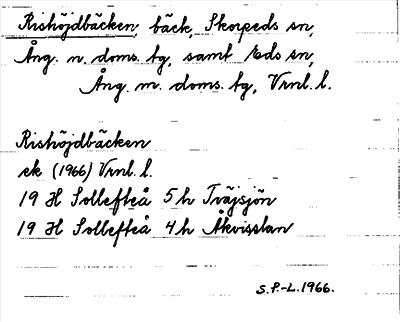 Rishöjdbäcken, bäck, Skorpeds sn,
Ång. n. doms. tg, samt Eds sn,
Ång. m. doms. tg, Vrnl. l.
Rishöjdbäcken
ek (1966) Vrnl. l.
19 H Sollefteå 5 h Tväjsjön
19 H Sollefteå 4 h Åkvisslan
S.P.-L. 1966.